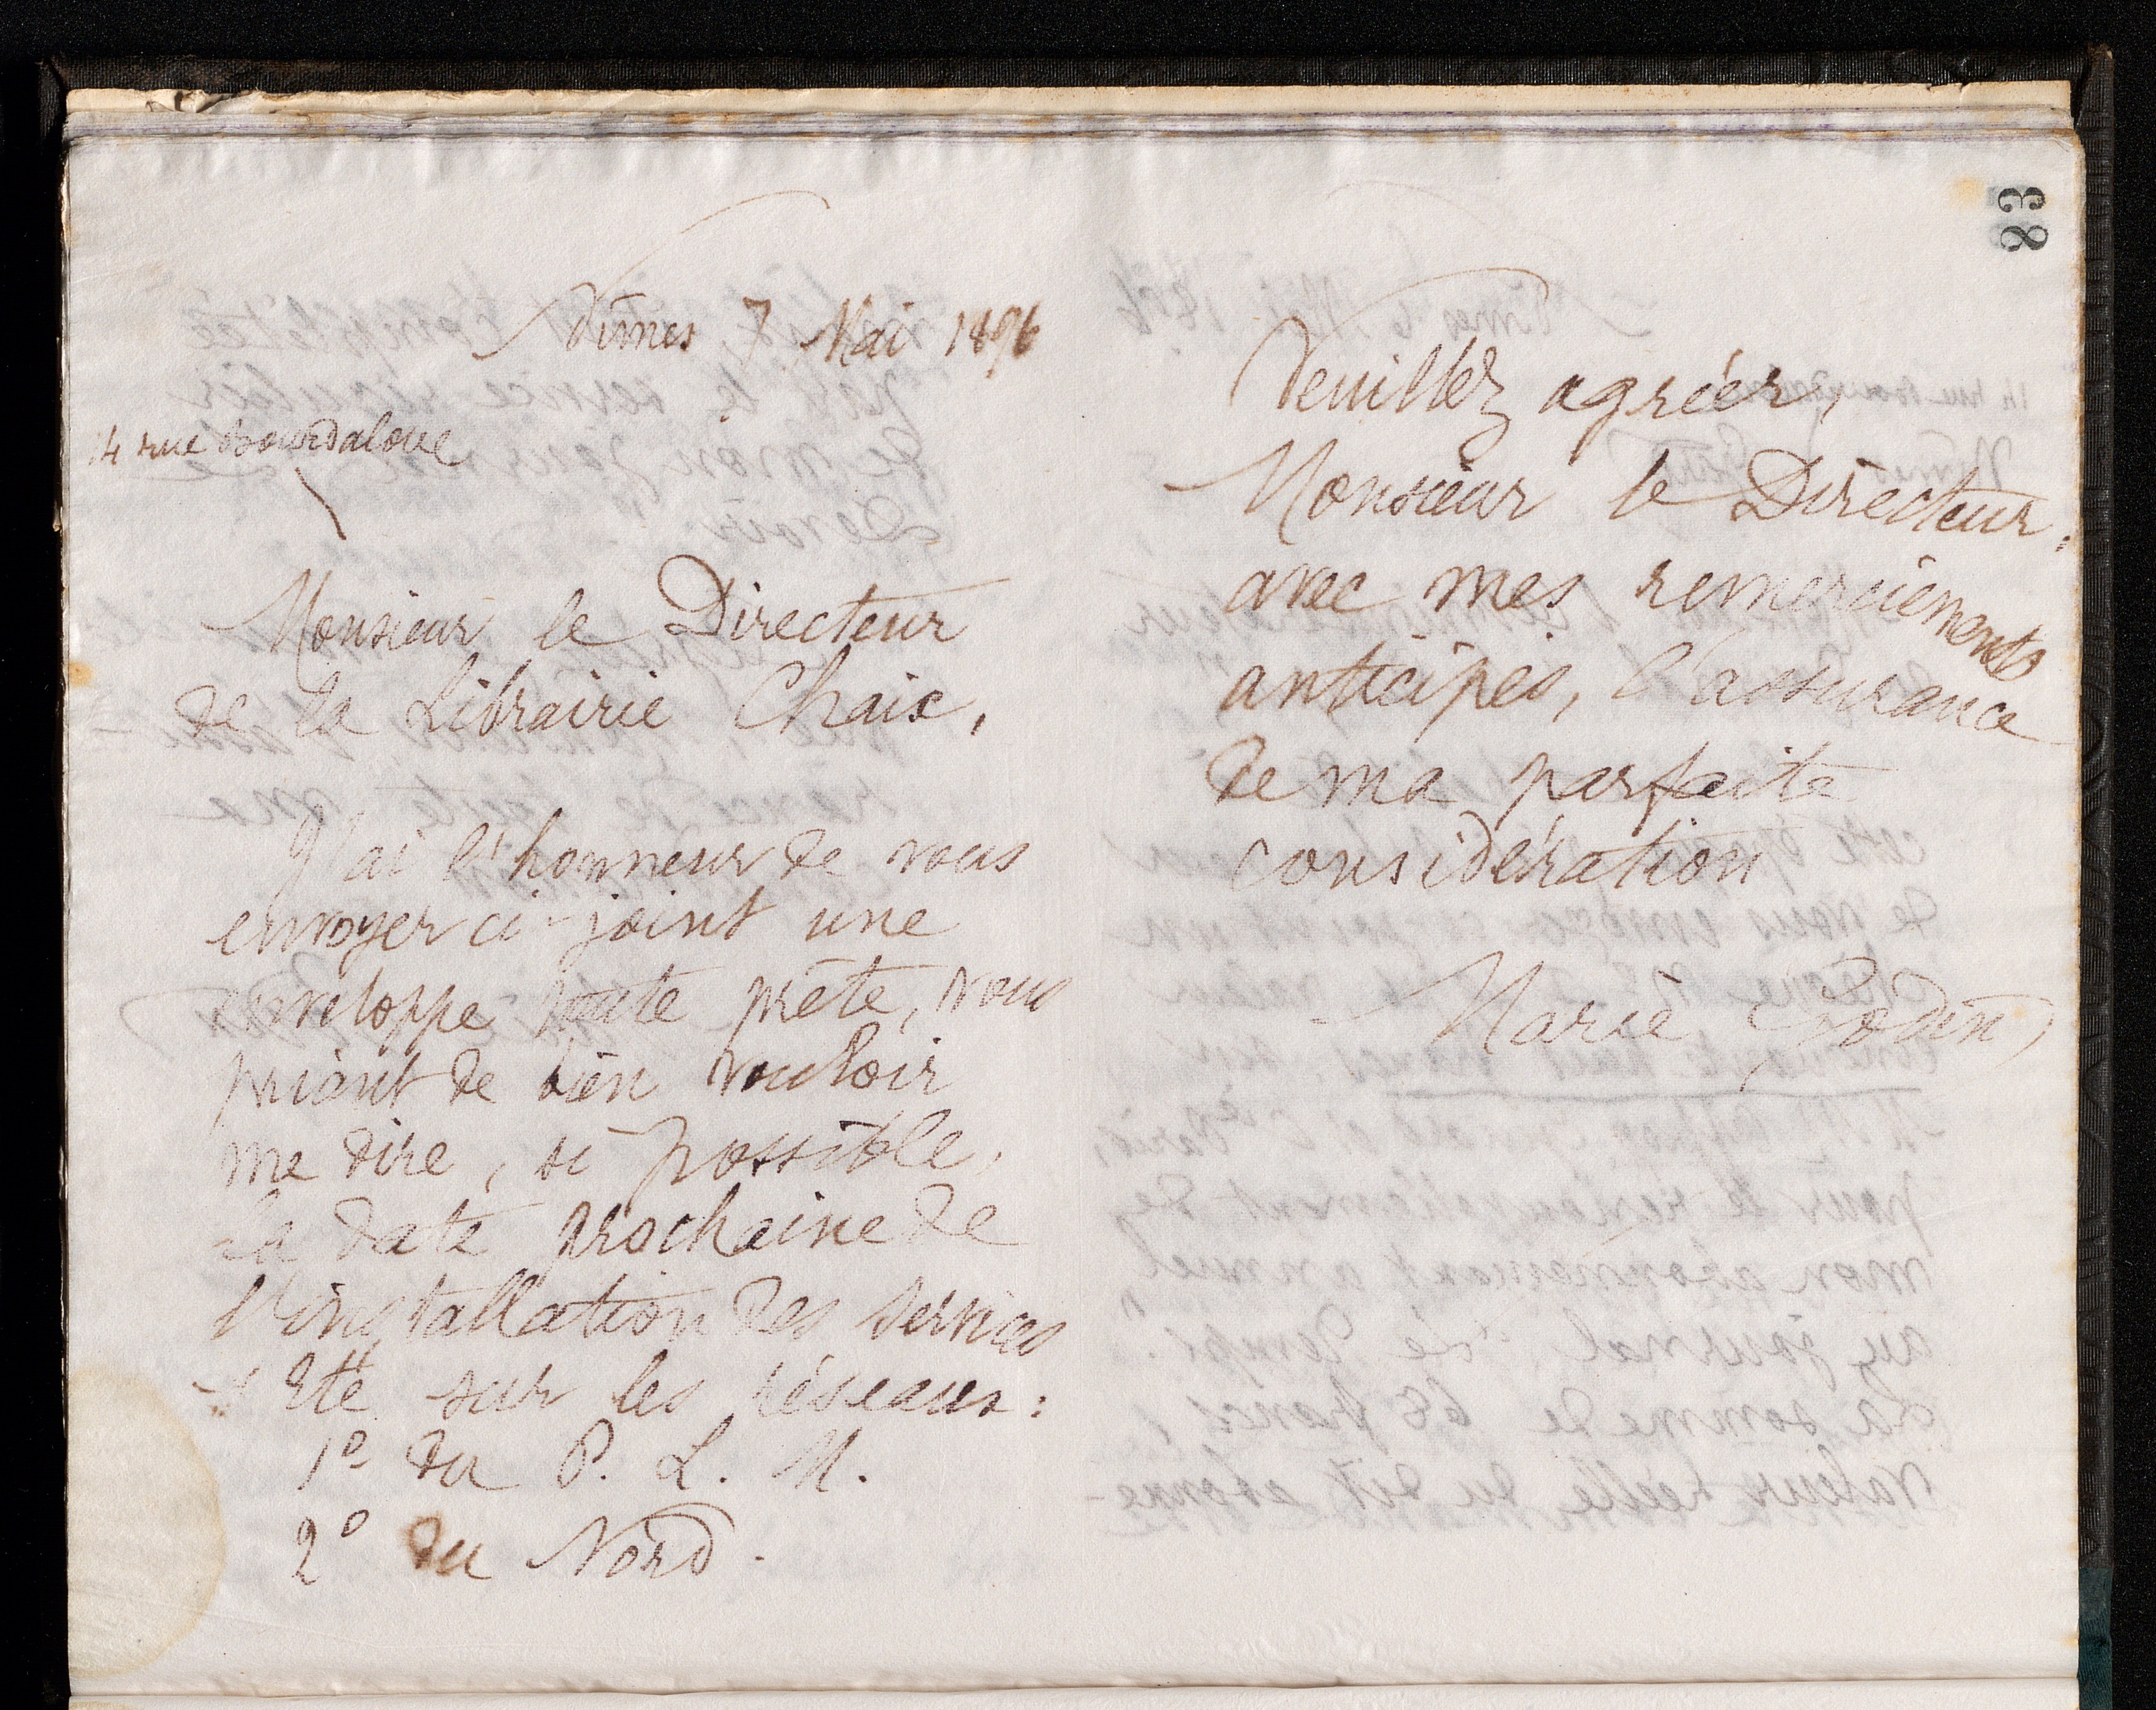 83
Nîmes 7 Mai 1896
14 rue Bourdaloue
Monsieur le Directeur
de la Librairie Chaix,
J'ai l'honneur de vous
envoyer ci-joint une
enveloppe toute prête, vous
priant de bien vouloir
me dire, si possible,
la date prochaine de
l'installation des services
d'Été sur les réseaux:
1º du P. L. M.
2º du Nord.
Veuillez agréer,
Monsieur le Directeur,
avec mes remerciements
anticipés, l'assurance
de ma parfaite
considération
Marie Godin